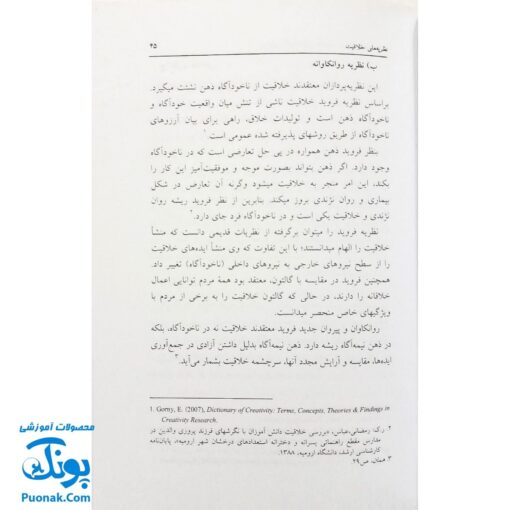 نظریه‌های خلاقیت ۴۵
ب) نظریه روانکاوانه
این نظریه‌پردازان معتقدند خلاقیت از ناخودآگاه ذهن نشئت میگیرد.
براساس نظریه فروید خلاقیت ناشی از تنش میان واقعیت خودآگاه و
ناخودآگاه ذهن است و تولیدات خلاق، راهی برای بیان آرزوهای
ناخودآگاه از طریق روشهای پذیرفته شده عمومی است.۱
بنظر فروید ذهن همواره در پی حل تعارضی است که در ناخودآگاه
وجود دارد. اگر ذهن بتواند بصورت موجه و موفقیت‌آمیز این کار را
بکند، این امر منجر به خلاقیت میشود وگرنه آن تعارض در شکل
بیماری و روان نژندی بروز میکند. بنابرین از نظر فروید ریشه روان
نژندی و خلاقیت یکی است و در ناخودآگاه فرد جای دارد.۲
نظریه فروید را میتوان برگرفته از نظریات قدیمی دانست که منشأ
خلاقیت را الهام میدانستند؛ با این تفاوت که وی منشأ ایده‌های خلاقیت
را از سطح نیروهای خارجی به نیروهای داخلی (ناخودآگاه) تغییر داد.
همچنین فروید در مقایسه با گالتون، معتقد بود همهٔ مردم توانایی اعمال
خلاقانه را دارند، در حالی که گالتون خلاقیت را به برخی از مردم با
ویژگیهای خاص منحصر میدانست.
روانکاوان و پیروان جدید فروید معتقدند خلاقیت نه در ناخودآگاه، بلکه
در ذهن نیمه‌آگاه ریشه دارد. ذهن نیمه‌آگاه بدلیل داشتن آزادی در جمع‌آوری
ایده‌ها، مقایسه و آرایش مجدد آنها، سرچشمه خلاقیت بشمار می‌آید.۳
1. Gorny, E. (2007), Dictionary of Creativity: Terms, Concepts, Theories & Findings in
Creativity Research.
۲ رک: رمضانی،عباس، «بررسی خلاقیت دانش آموزان با نگرشهای فرزند پروری والدین در
مدارس مقطع راهنمائی پسرانه و دخترانه استعدادهای درخشان شهر ارومیه»، پایان‌نامه
کارشناسی ارشد، دانشگاه ارومیه، ۱۳۸۸.
۳ همان، ص۲۹.
محصولات آموزشی
پونک
Puonak.Com